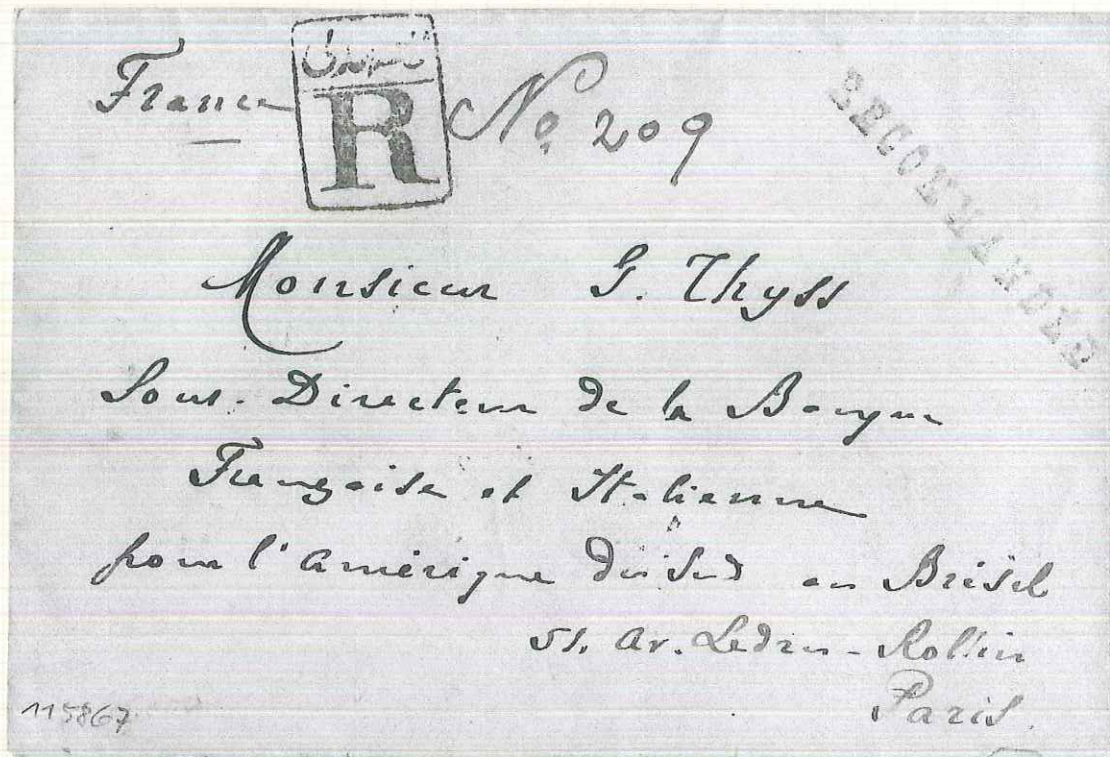 France
R
No 209
RECOMMANDÉ
Monsieur G. Thyss
Sous-Directeur de la Banque
Française et Italienne
pour l'Amérique du Sud au Brésil
51, Av. Ledru-Rollin
Paris.
115867